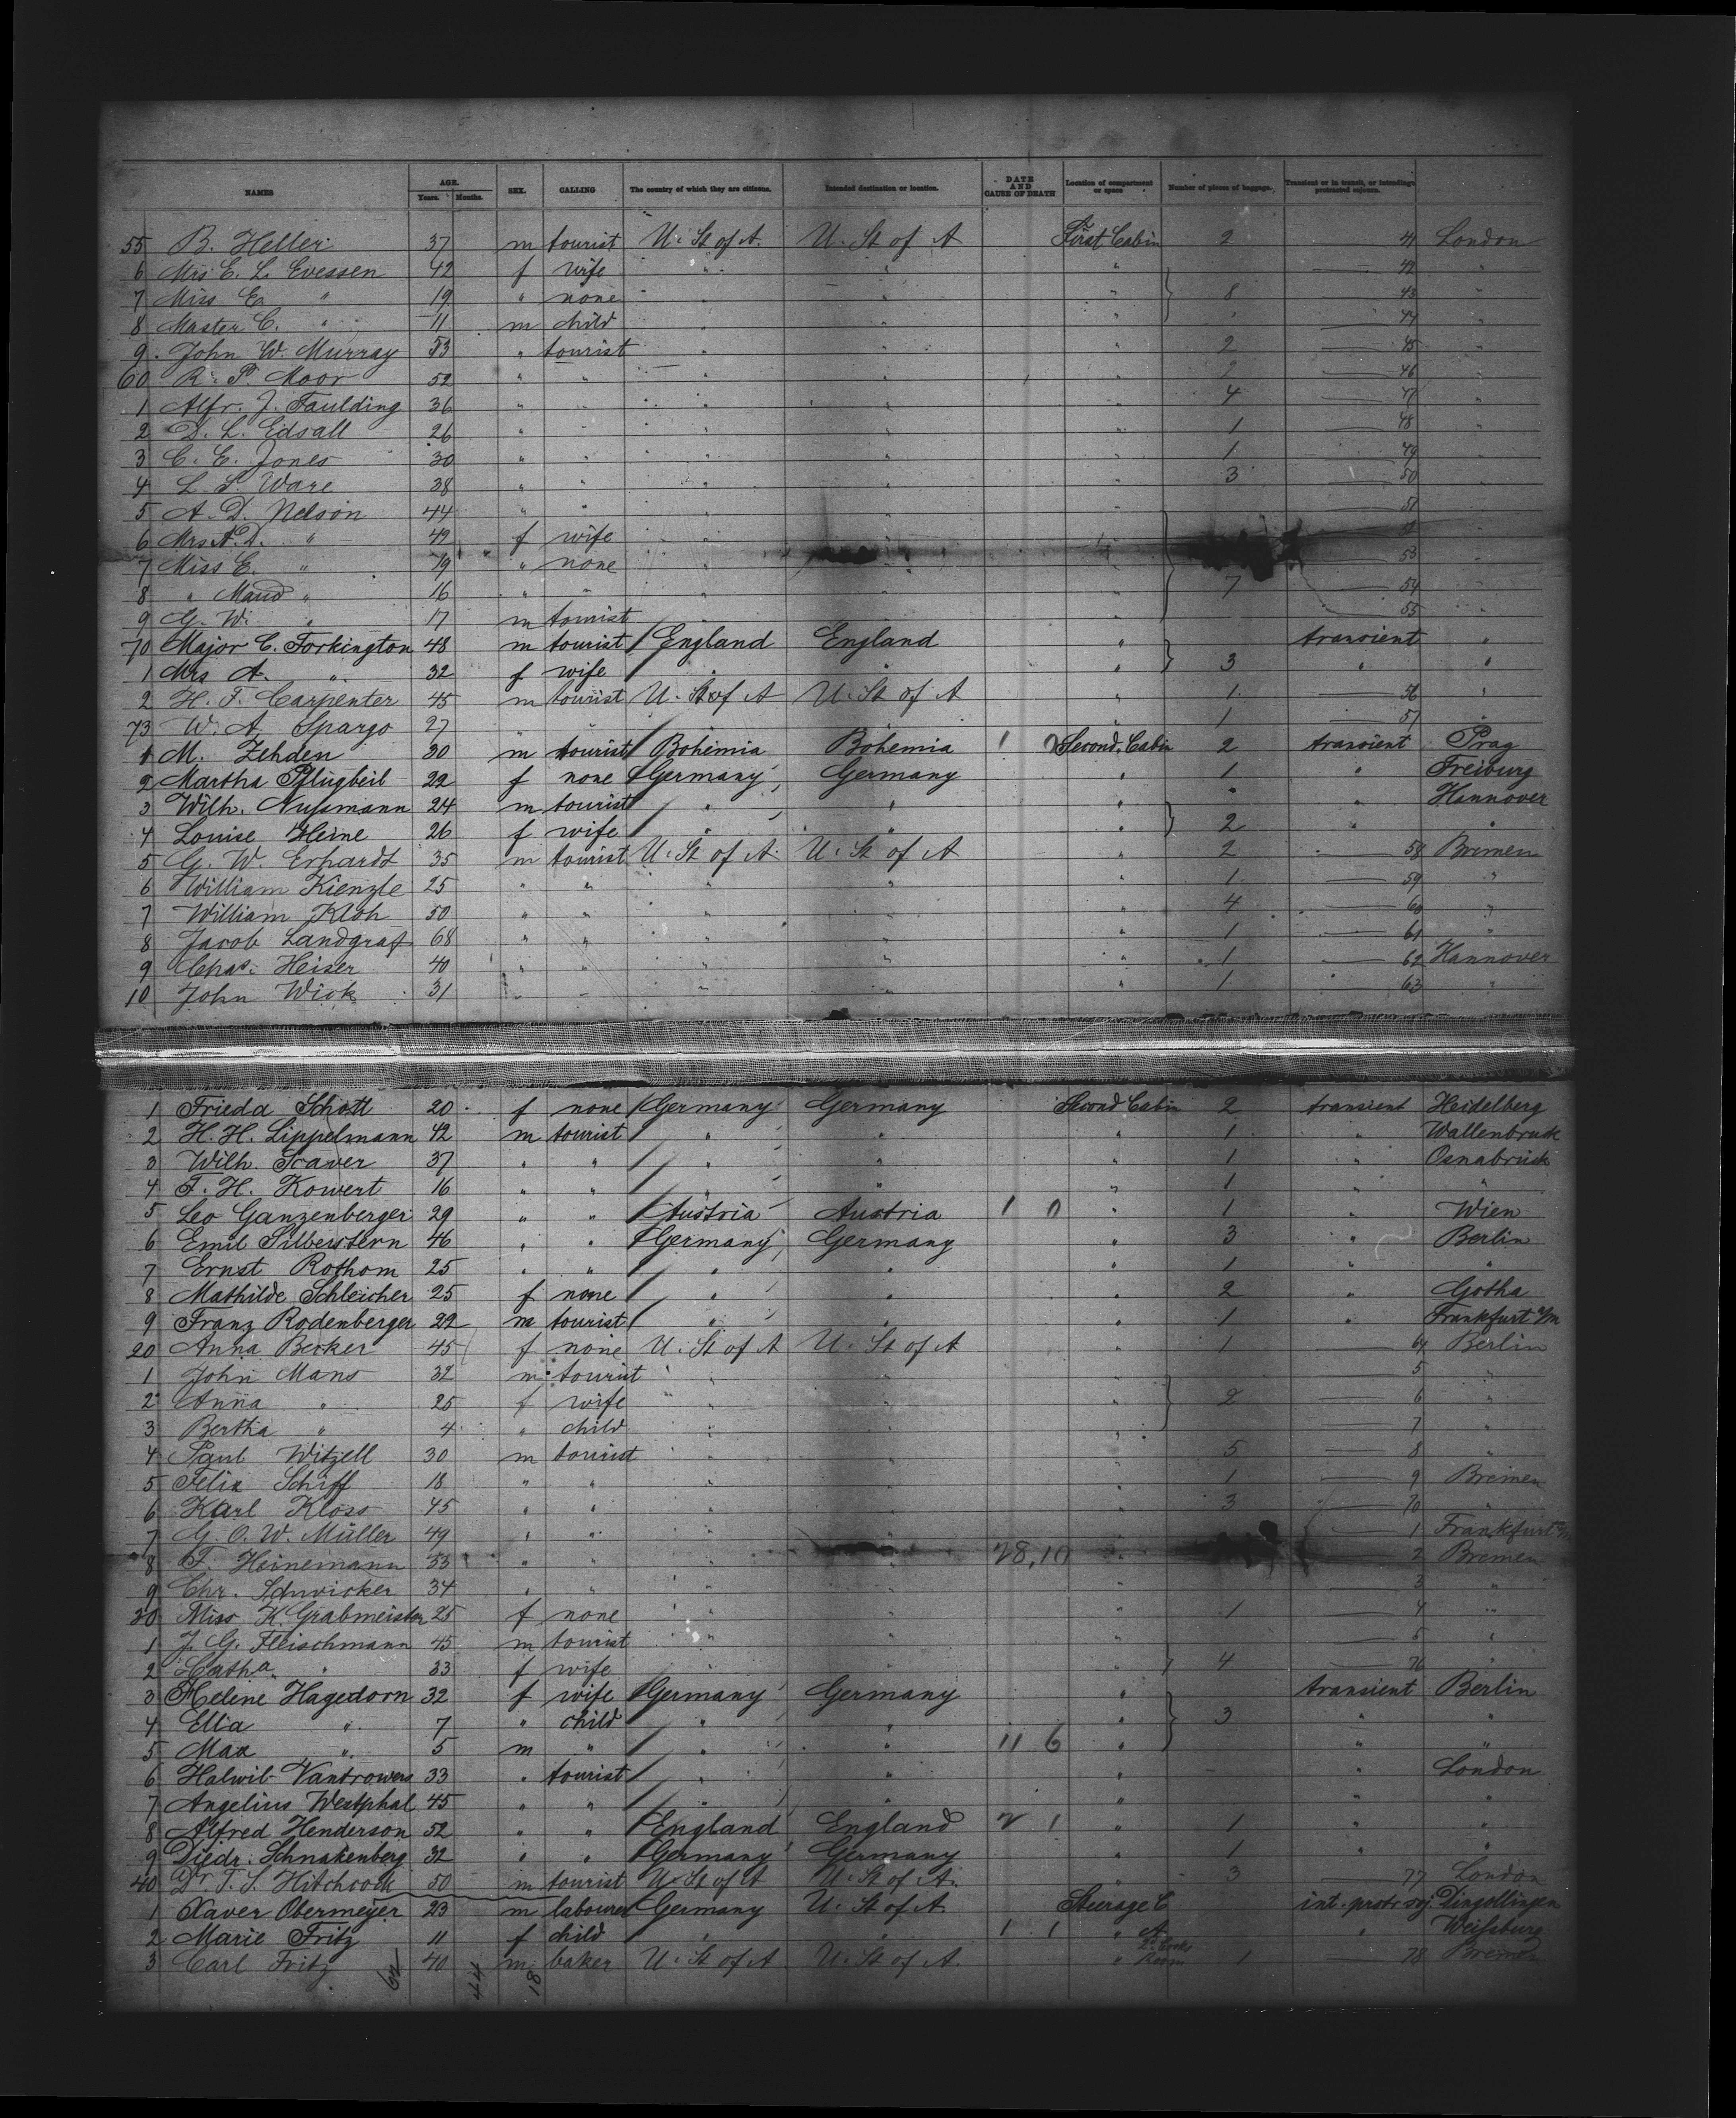 NAMES AGE. Years. Months. SEX. CALLING The country of which they are citizens. Intended destination or location. DATE AND CAUSE OF DEATH Location of compartment or space Number of pieces of baggage. Transient or in transit, or intending protracted sojourn.
55 B. Heller 37 m tourist U. St of A. U. St of A First Cabin 2 41 London
6 Mrs E. L. Evessen 42 f wife " " " 42 "
7 Miss E. " 19 " none " " " 8 43 "
8 Master C. " 11 m child " " " " 44 "
9 John W. Murray 53 " tourist " " " 2 45 "
60 R. P. Moor 52 " " " " " 2 46 "
1 Alfr. J. Faulding 36 " " " " " 4 47 "
2 D. L. Edsall 26 " " " " " 1 48 "
3 C. E. Jones 30 " " " " " 1 49 "
4 L. S. Ware 38 " " " " " 3 50 "
5 A. D. Nelson 44 " " " " " 51 "
6 Mrs A. D. " 49 f wife " " " "
7 Miss E. " 19 " none " " " 53 "
8 " Maud " 16 " " " " " 7 54 "
9 G. W. " 17 m tourist " " " 55 "
70 Major C. Torkington 48 m tourist England England " transient "
1 Mrs A. " 32 f wife " " " 3 " "
2 H. F. Carpenter 45 m tourist U. St of A U. St of A " 1 56 "
73 W. A. Spargo 27 " " " " " 1 57 "
1 M. Zehden 30 m tourist Bohemia Bohemia 1 0 Second Cabin 2 transient Prag
2 Martha Pflugbeil 22 f none Germany Germany " 1 " Freiburg
3 Wilh. Nußmann 24 m tourist " " " " " Hannover
4 Louise Heine 26 f wife " " " 2 " "
5 G. W. Erhardt 35 m tourist U. St of A. U. St of A " 2 58 Bremen
6 William Kienzle 25 " " " " " 1 59 "
7 William Kloh 50 " " " " " 4 60 "
8 Jacob Landgraf 68 " " " " " 1 61 "
9 Chas. Heiser 40 " " " " " 1 62 Hannover
10 John Wick 31 " " " " " 1 63 "
1 Frieda Schott 20 f none Germany Germany Second Cabin 2 transient Heidelberg
2 H. H. Lippelmann 42 m tourist " " " 1 " Wallenbruck
3 Wilh. 37 " " " " " 1 " Osnabrück
4 F. H. Kowert 16 " " " " " 1 " "
5 Leo Ganzenberger 29 " " Austria Austria 1 0 " 1 " Wien
6 Emil Silberstern 46 " " Germany Germany " 3 " Berlin
7 Ernst Rothom 25 " " " " " 1 " "
8 Mathilde Schleicher 25 f none " " " 2 " Gotha
9 Franz Rodenberger 22 m tourist " " " 1 " Frankfurt a/m
20 Anna Becker 45 f none U. St of A U. St of A " 1 64 Berlin
1 John Mans 32 m tourist " " " 5 "
2 Anna " 25 f wife " " " 2 6 "
3 Bertha " 4 " child " " " 7 "
4 Paul Witzell 30 m tourist " " " 5 8 "
5 Felix Schiff 18 " " " " " 1 9 Bremen
6 Karl Kloss 45 " " " " " 3 70 "
7 G. O. W. Müller 49 " " " " " 1 Frankfurt
8 F. Heinemann 33 " " " " 28,10 " 2 Bremen
9 Chr. Schwicker 34 " " " " " 3 "
30 Miss K. Grabmeister 25 f none " " " 1 4 "
1 J. G. Fleischmann 45 m tourist " " " 5 "
2 Catha " 33 f wife " " " 4 76 "
3 Helene Hagedorn 32 f wife Germany Germany " transient Berlin
4 Ella " 7 " child " " " 3 " "
5 Max " 5 m " " " 11 6 " " "
6 33 " tourist " " " " London
7 Angelius Westphal 45 " " " " " " "
8 Alfred Henderson 52 " " England England 2 1 " 1 " "
9 Diedr. Schnakenberg 32 " " Germany Germany " 1 " "
40 Dr T. S. Hitchcock 50 m tourist U. St of A U. St of A. " 3 77 London
1 Xaver Obermeyer 23 m labourer Germany U. St of A Steerage C int. protr. soj. Dingollingen
2 Marie Fritz 11 f child " " 1 1 " A " Weißburg
3 Carl Fritz 40 m baker U. St of A U. St of A. " Room 1 78 Bremen
64 44 18